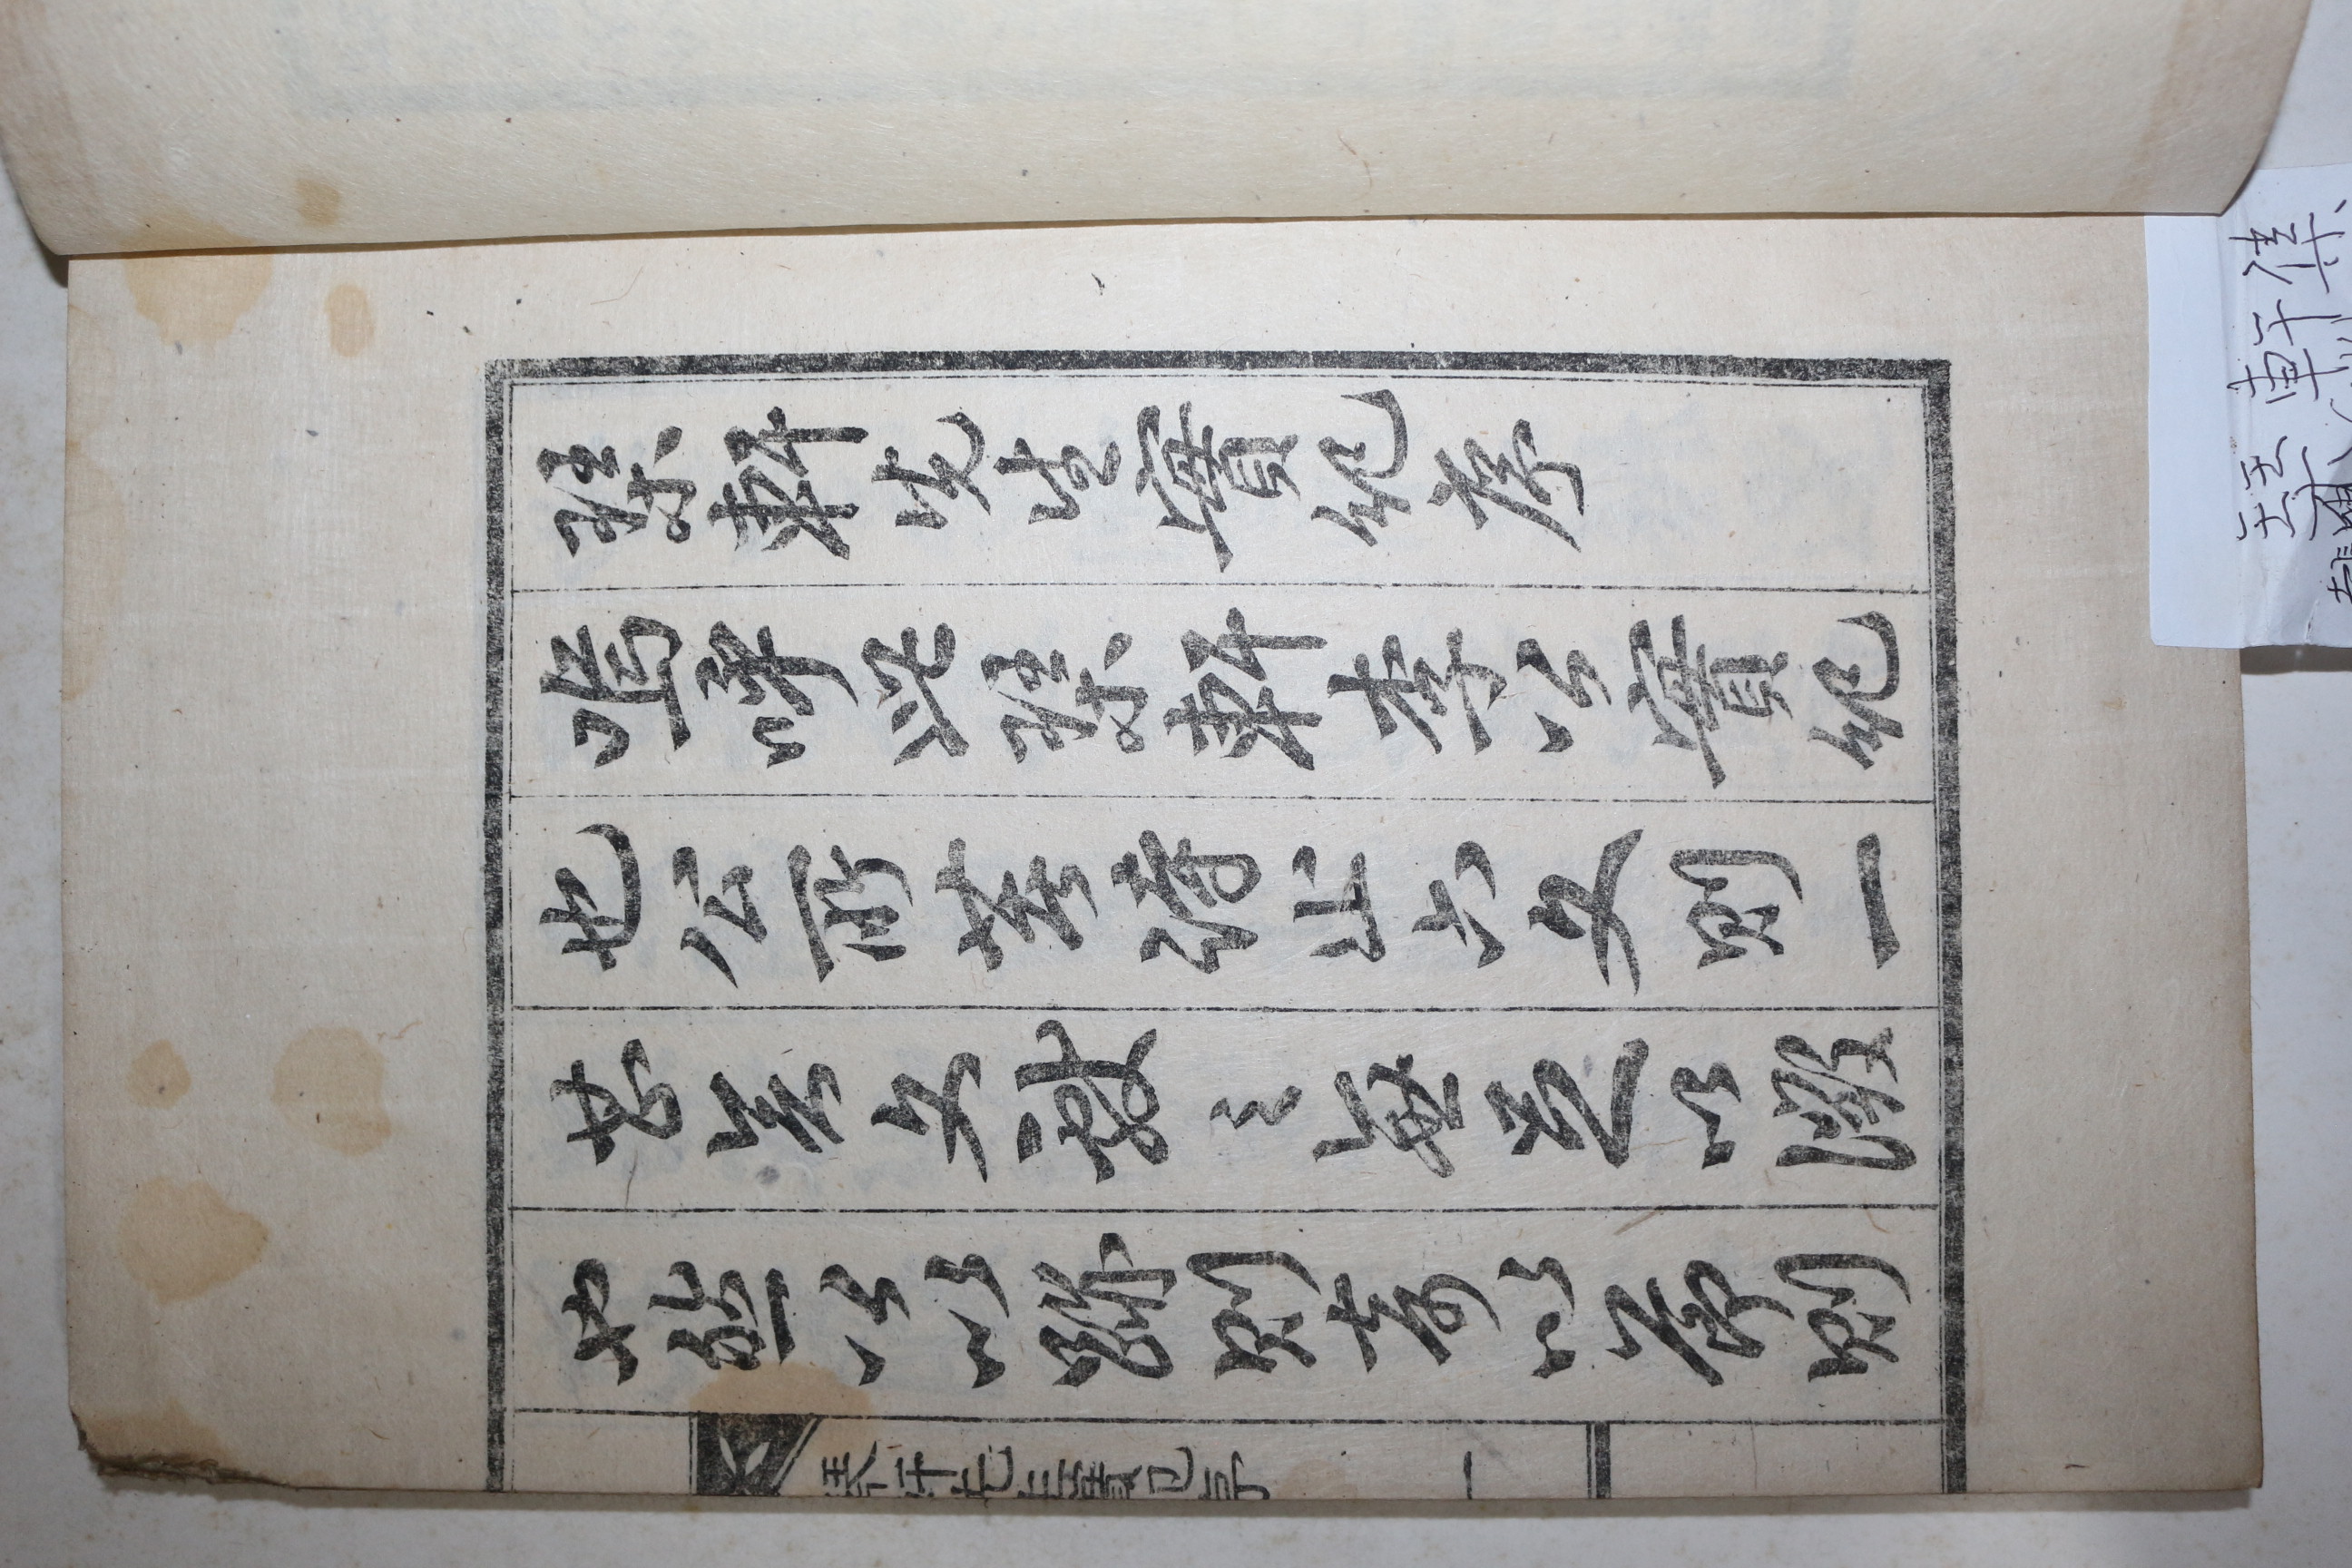 琹軒先生實紀序
嗚呼此琹軒李公實紀
也公所著詩止六文則一
甚矣文獻之無足以徵
也然公以跡則奇以節則
琹軒先生實紀序
一
琹軒集